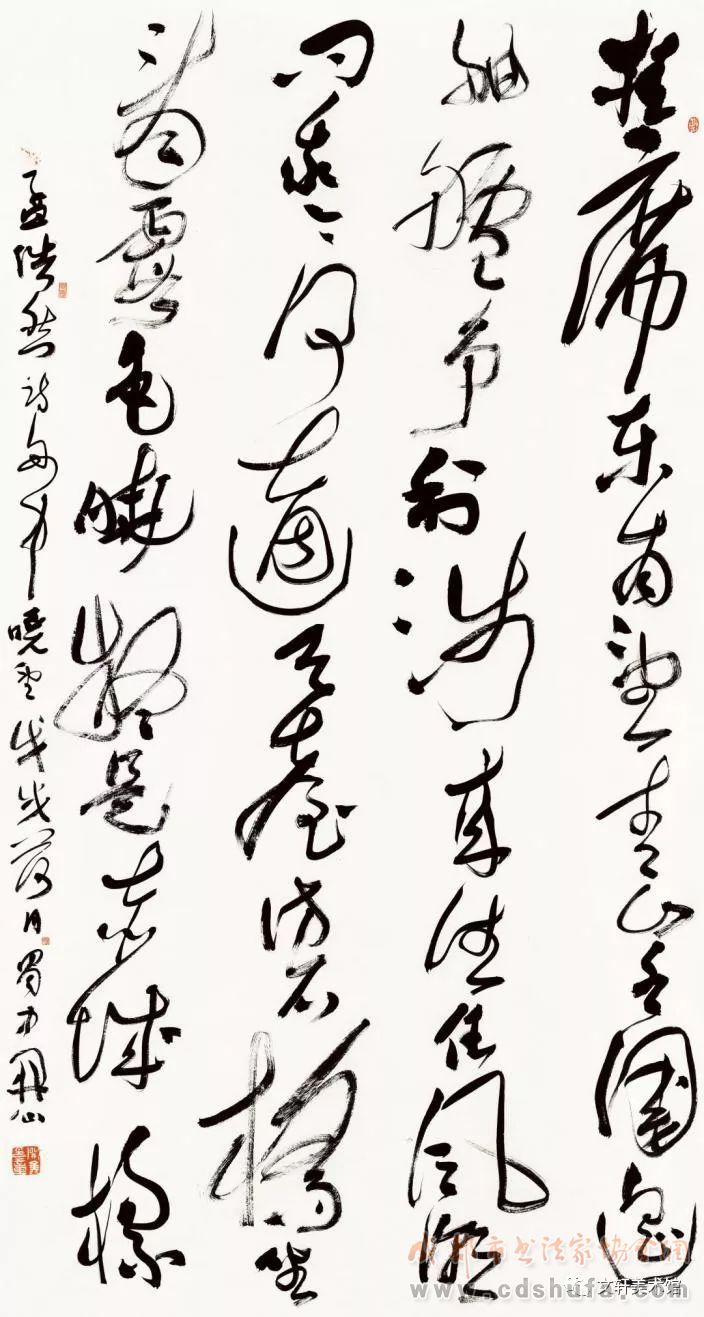 挂席東南望青山水國遥
舳艫争利涉來往任風潮
问我今何適天臺访石橋坐
看霞色曉疑是赤城標
孟浩然诗舟中曉望戊戌荷月蜀中
成都市书法家协会网
www.cdshufa.com
文轩美术馆